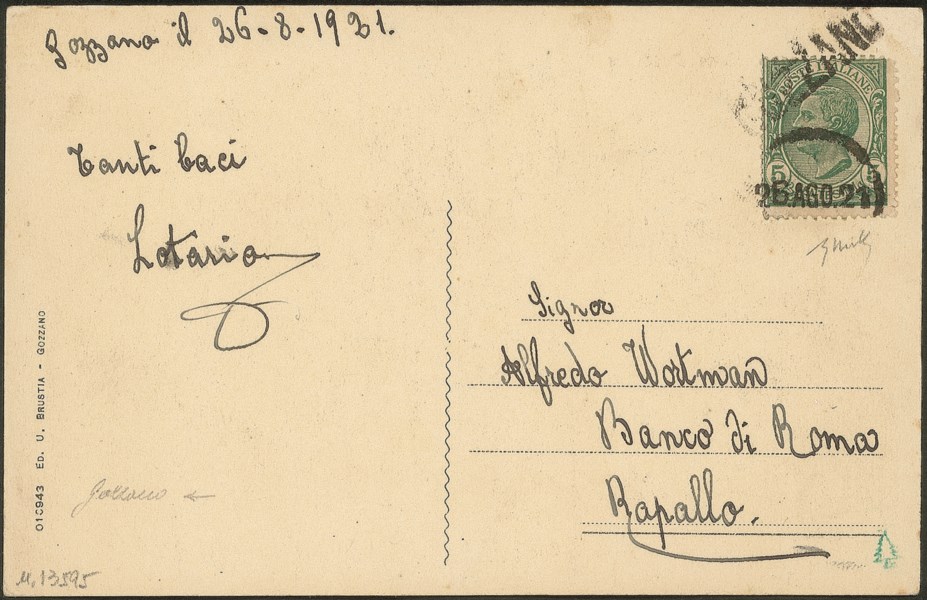 Gozzano il 26-8-1921.
Tanti baci
Lotario
POSTE ITALIANE
5 5
26 AGO. 21
Signor
Alfredo Wortman
Banco di Roma
Rapallo.
010943 ED. U. BRUSTIA - GOZZANO
Gozzano
13595